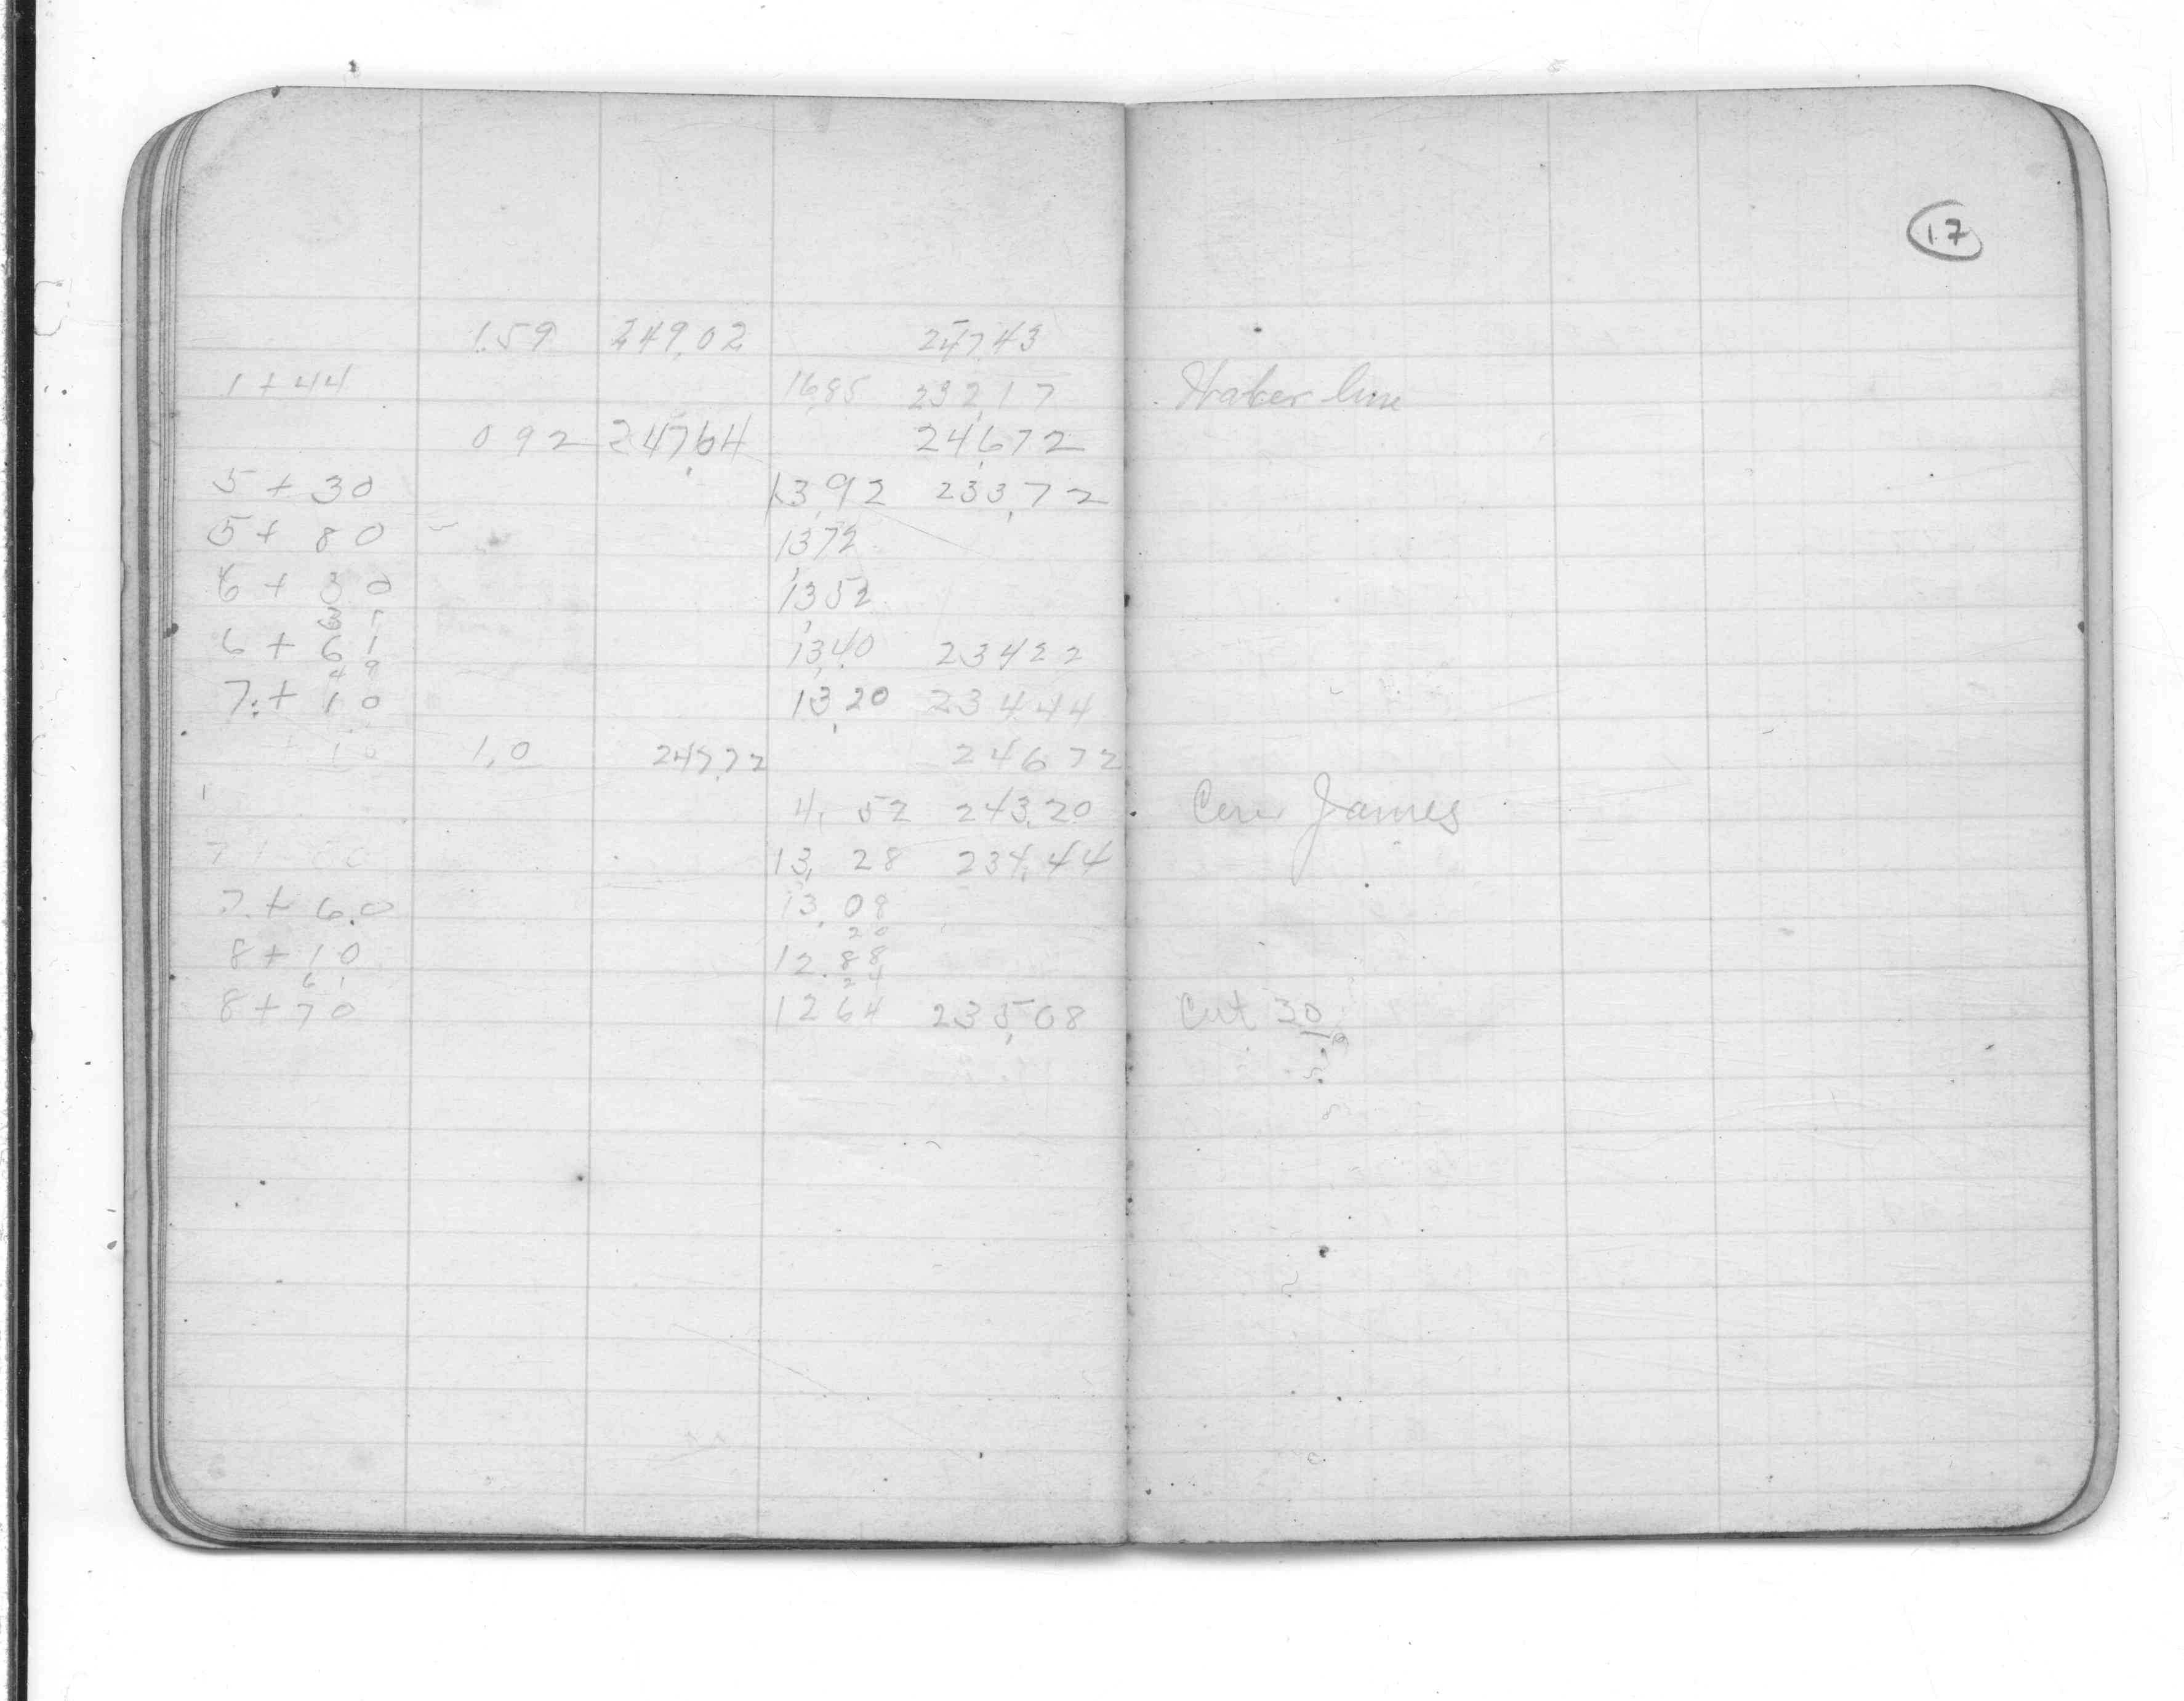 17
1.59 249.02 247.43
1+44 16.85 232.17 Water line
0 92 247.64 246.72
5+30 13.92 233.72
5+80 13.72
6+30 13.52
31
6+61 13.40 234 22
49
7+10 13.20 234 44
+10 1.0 247.72 246 72
4. 52 243.20 James
13. 28 234.44
7+60 13.08
20
8+10 12.88
61 24
8+70 12 64 235.08 Cut 30